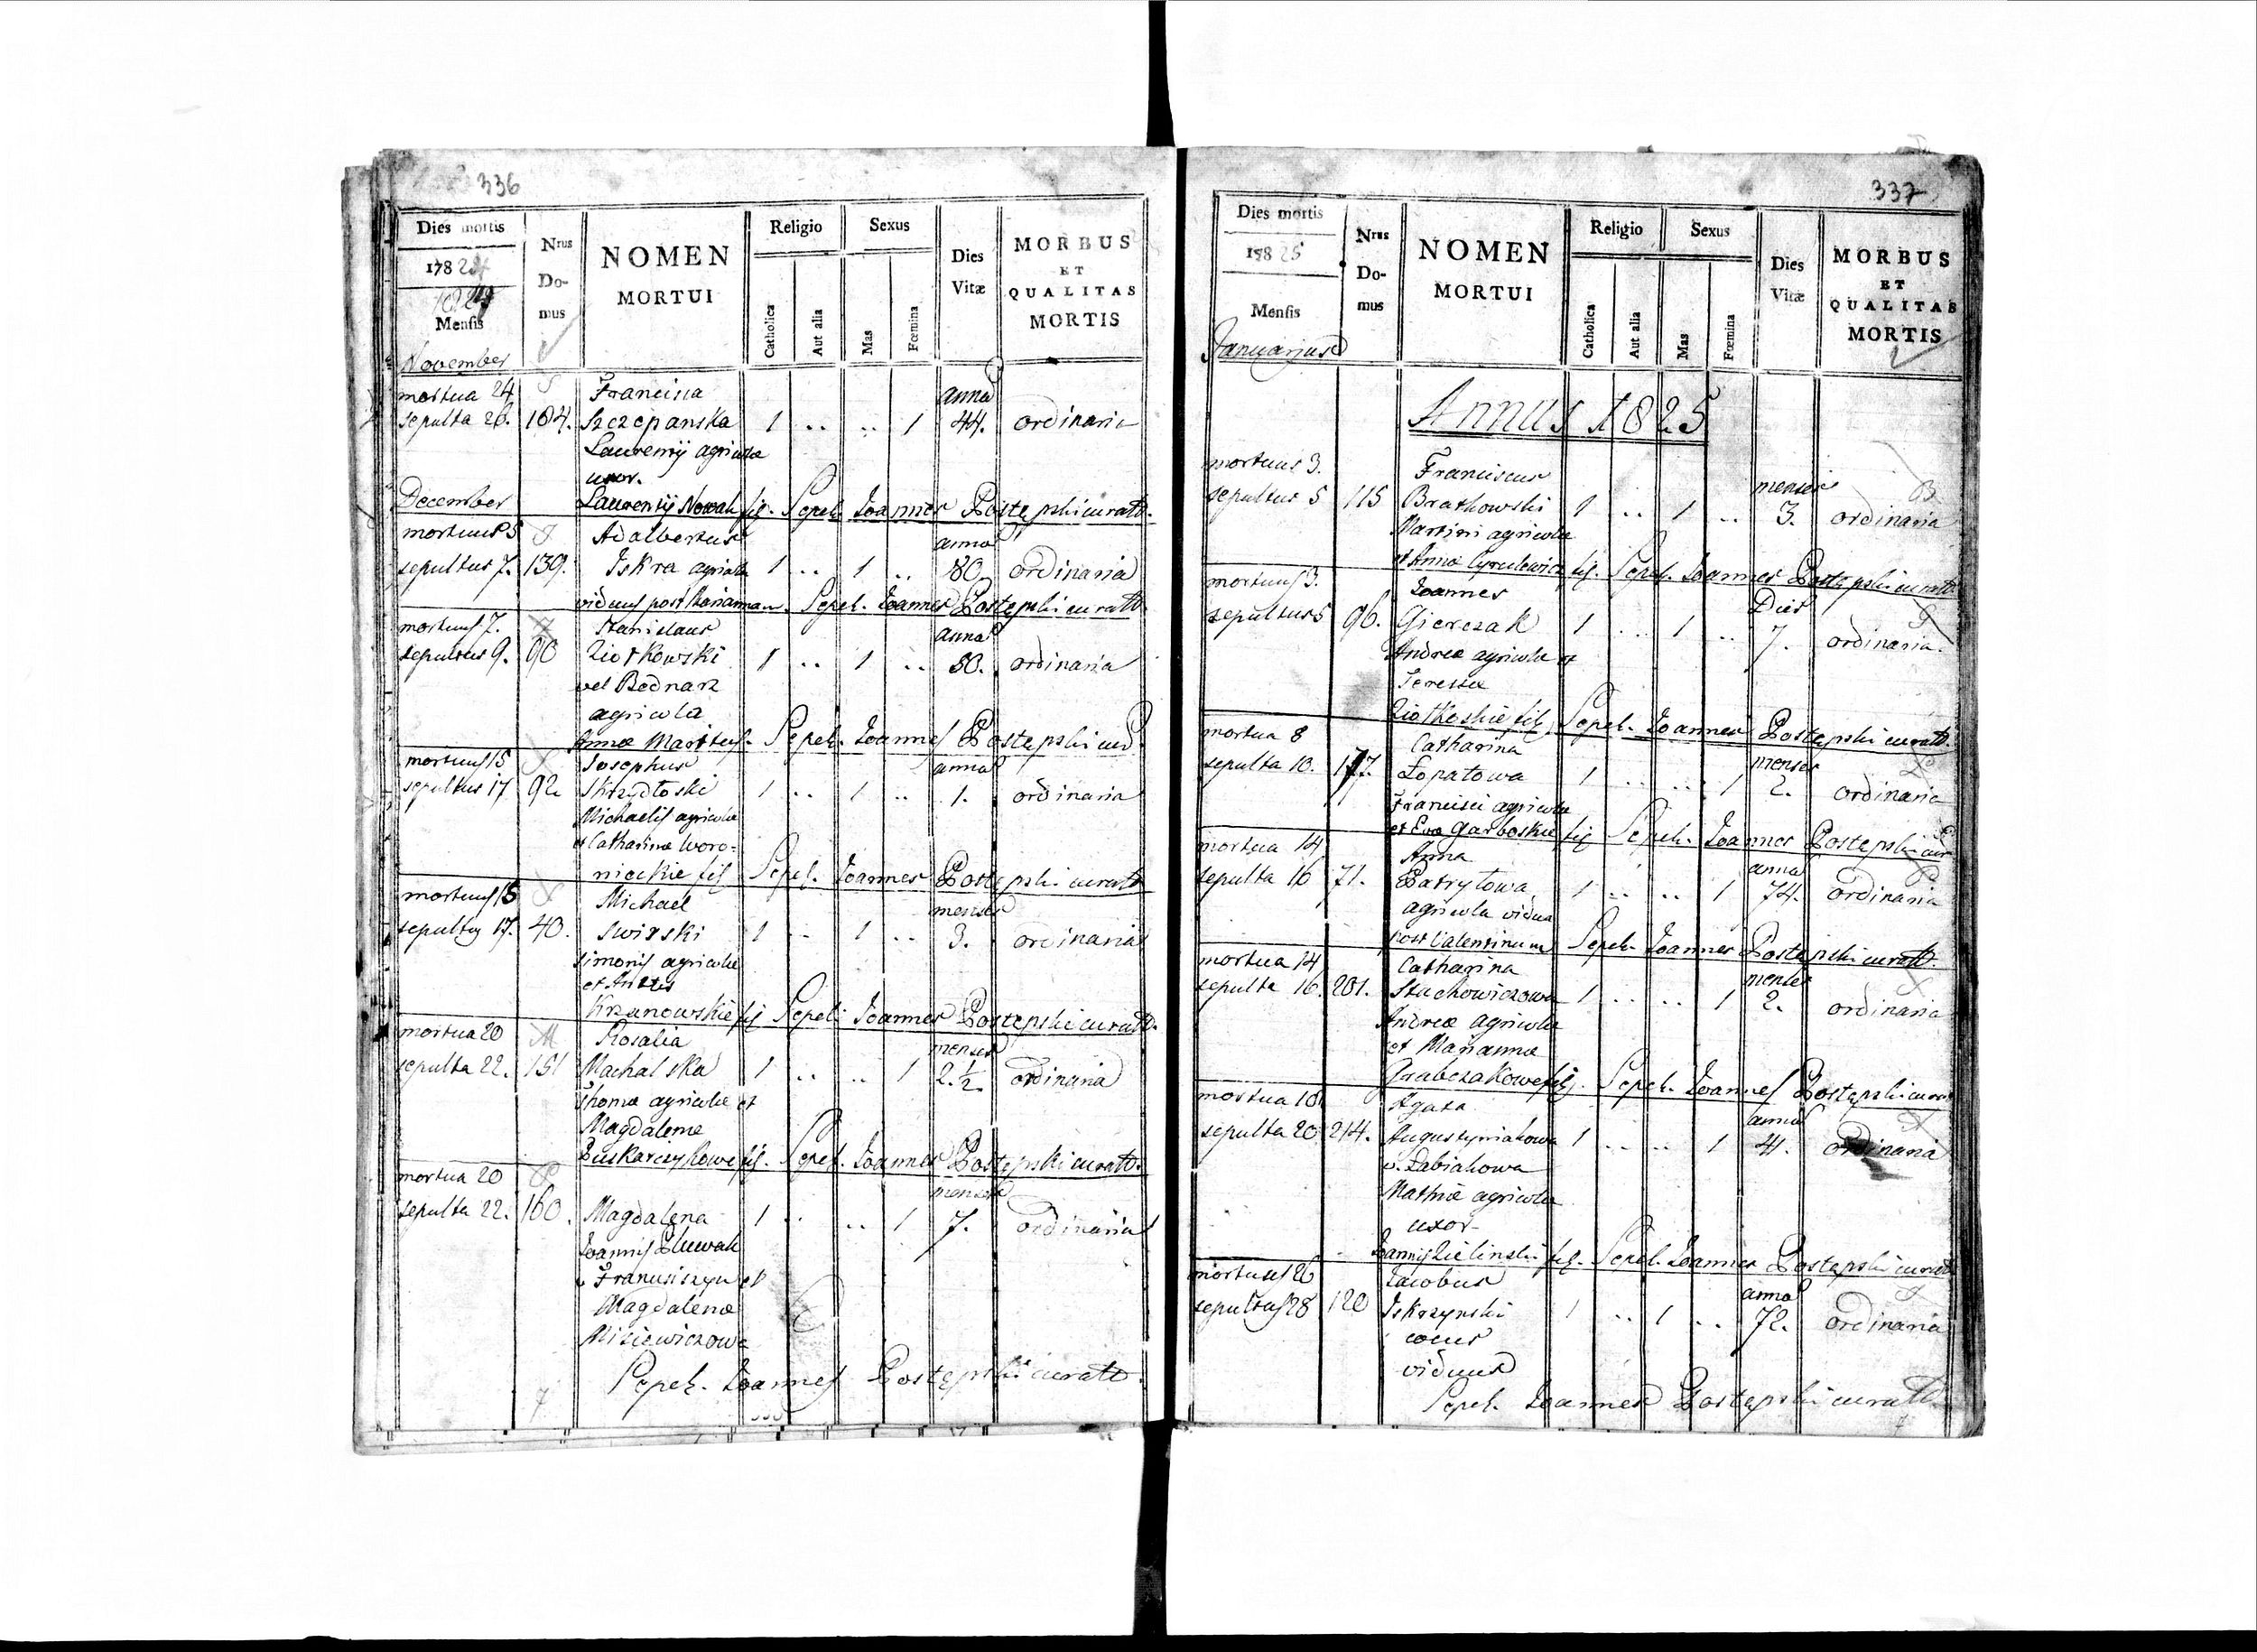 336
Dies mortis
Nrus
Do-
mus
NOMEN
MORTUI
Religio
Sexus
Dies
Vitæ
MORBUS
ET
QUALITAS
MORTIS
178
Mensis
Catholica
Aut alia
Mas
Fœmina
November
mortua 24 Francisca anna
sepulta 26. 184. Szczepanska 1 .. .. 1 44. ordinaria
Laurentij agricolæ
uxor.
December Laurentij Nowak fil. Sepel. Joannes Postępski curatt.
mortuus 5 Adalbertus anna
sepultus 7. 139. Iskra agricola 1 .. 1 .. 80. ordinaria
viduus post Mariannam. Sepel. Joannes Postępski curatt.
mortuus 7. Stanislaus anna
sepultus 9. 90 Ziotkowski 1 .. 1 .. 80. ordinaria
vel Bednarz
agricola
Annæ Sepel. Joannes Postępski
mortuus 15 Josephus anna
sepultus 17 92 Skrzydłoski 1 .. 1 .. 1. ordinaria
Michaelis agricolæ
et Catharinæ Woro-
nieckie fil Sepel. Joannes Postępski curatt
mortuus 15 Michael menses
sepultus 17. 40. Swirski 1 .. 1 .. 3. ordinaria
Simonis agricolæ
et
Krzanowskie fil Sepel. Joannes Postępski curatt.
mortua 20 Rosalia menses
sepulta 22. 151 Machalska 1 .. .. 1 2.½. ordinaria
Thomæ agricolæ et
Magdalenæ
Puskarczykowe fil. Sepel. Joannes Postępski curatt.
mortua 20 menses
sepulta 22. 160. Magdalena 1 .. .. 1 7. ordinaria
Joannis
et
Magdalenæ
Misiewiczowe
Sepel. Joannes Postępski curatt.
7
337
Dies mortis
Nrus
Do-
mus
NOMEN
MORTUI
Religio
Sexus
Dies
Vitæ
MORBUS
ET
QUALITAS
MORTIS
178 25
Mensis
Catholica
Aut alia
Mas
Fœmina
Januarius
Annus 1825
mortuus 3. Franciscus menses
sepultus 5 115 Bratkowski 1 .. 1 .. 3. ordinaria
Martini agricolæ
et Annæ Cyrulewicz fil. Sepel. Joannes Postępski curatt.
mortuus 3. Joannes Dies
sepultus 5 96. Gierczak 1 .. 1 .. 7. ordinaria.
Andreæ agricolæ et
Teressæ
Ziotkoskie fil Sepel. Joannes Postępski curatt.
mortua 8 Catharina menses
sepulta 10. 177. Łopatowa 1 .. .. 1 2. ordinaria
Francisci agricolæ
et Evæ Garboskie fil Sepel. Joannes Postępski cur
mortua 14 Anna anna
sepulta 16 71. Patrytowa 1 .. .. 1 74. ordinaria
agricola vidua
post Valentinum Sepel. Joannes Postępski curatt.
mortua 14 Catharina menses
sepulta 16. 201. Stachowiczowa 1 .. .. 1 2. ordinaria
Andreæ agricolæ
et Mariannæ
Grabczakowe fil. Sepel. Joannes Postępski curatt
mortua 18 Agata anna
sepulta 20 214. Augustyniakowa 1 .. .. 1 41. ordinaria
v. Łabiakowa
Mathiæ agricolæ
uxor
Joannis Zielinski fil. Sepel. Joannes Postępski curatt
mortuus 26 Jacobus anna
sepultus 28 120 Iskrzynski 1 .. 1 .. 72. ordinaria
viduus
Sepel. Joannes Postępski curatt.